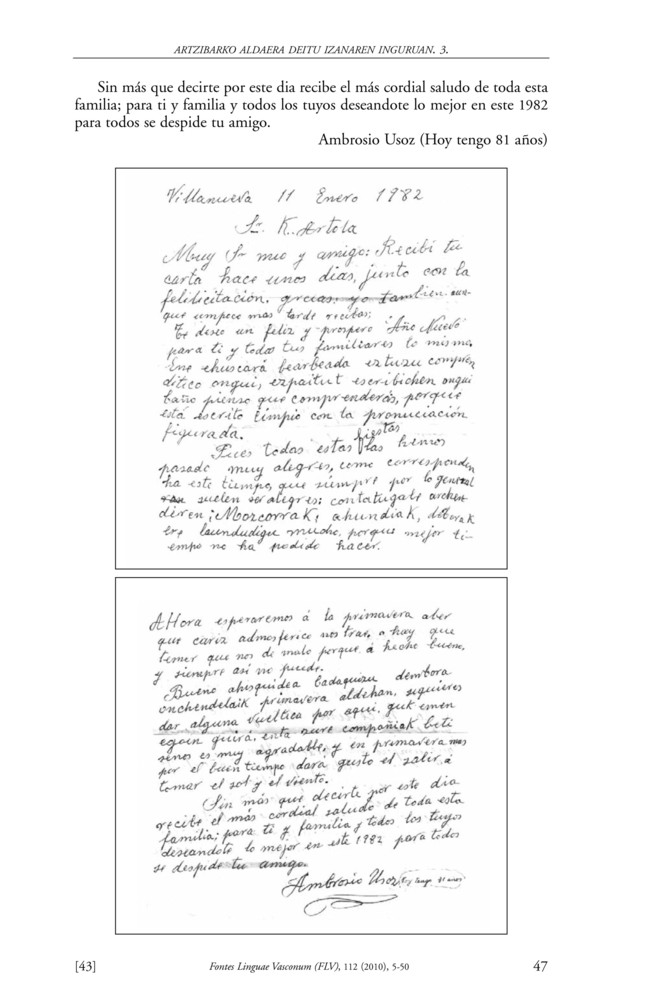 ARTZIBARKO ALDAERA DEITU IZANAREN INGURUAN. 3.
Sin más que decirte por este dia recibe el más cordial saludo de toda esta
familia; para ti y familia y todos los tuyos deseandote lo mejor en este 1982
para todos se despide tu amigo.
Ambrosio Usoz (Hoy tengo 81 años)
Villanueva 11 Enero 1982
Sr. K. Artola
Muy Sr mio y amigo: Recibí tu
carta hace unos dias, junto con la
felilicitación, grcias, yo tambien aun-
que empece mas tarde
Te deseo un feliz y prospero Año Nuevo
para ti y todos tus familiares lo mismo,
Ene ehuscará bearbeada eztuzu compren
ditico ongui, ezpaitut escribichen ongui
baño pienso que comprenderás, porque
está escrito limpio con la pronuciación
figurada.
Pues todas estas fiestas las hemos
pasado muy alegres, como corresponden
ha este tiempo, que siempre por lo general
suelen ser alegres: contatugals archen
diren; Mozcorrak, ahundiak, diberak
ere laundudigu mucho, porque mejor ti-
empo no ha podido hacer.
AHora esperaremos á la primavera aber
que cariz admosferico nos trae, o hay que
temer que nos de malo porque á hecho bueno,
y siempre así no puede.
Bueno ahisquidea badaquizu dembora
onchendelaik primavera aldehan, siquieres
dar alguna vueltica por aqui, guk emen
egoin guirá, enta zure compañiak beti
senos es muy agradable, y en primavera mas
por el buen tiempo dara gusto el salir á
tomar el sol y el viento.
Sin más que decirte por este dia
recibe el más cordial saludo de toda esta
familia; para ti y familia y todos los tuyos
deseandote lo mejor en este 1982 para todos
se despide tu amigo.
Ambrosio Usoz
[43]
Fontes Linguae Vasconum (FLV), 112 (2010), 5-50
47